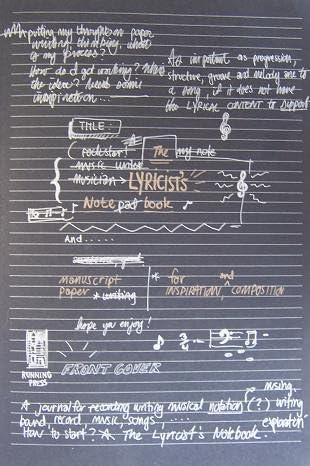 putting my thoughts on paper
writing, thinking, what
is my process?
How do I get writing?
the idea? need some
inspiration...
As important as progression,
structure, groove and melody are to
a song, if it does not have
the LYRICAL CONTENT to support
TITLE:
rockstart The my note
music writer
musician > LYRICIST'S
Notepad book
And.....
manuscript
paper * writing
* for and
INSPIRATION, COMPOSITION
hope you enjoy!
RUNNING
PRESS
FRONT COVER
musing,
A journal for recording writing musical notation (?) writing
band, record, music, songs..... exploration
How to start? A The Lyricist's Notebook.